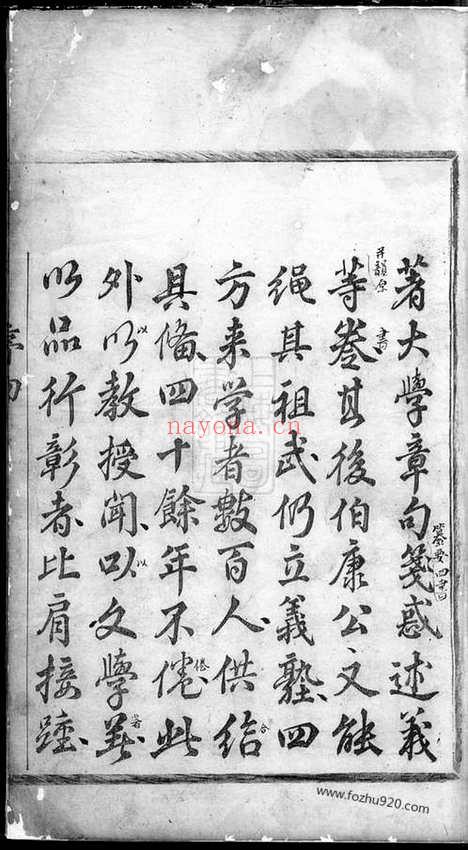 著大學章句箋惑述義
纂要四書
等卷其後伯康公又能
并韻原書
繩其祖武仍立義塾四
方来学者數百人供给
具偹四十餘年不倦此
外以教授聞以文學著
以品行彰者比肩接踵
nayona.cn
www.fozhu920.com